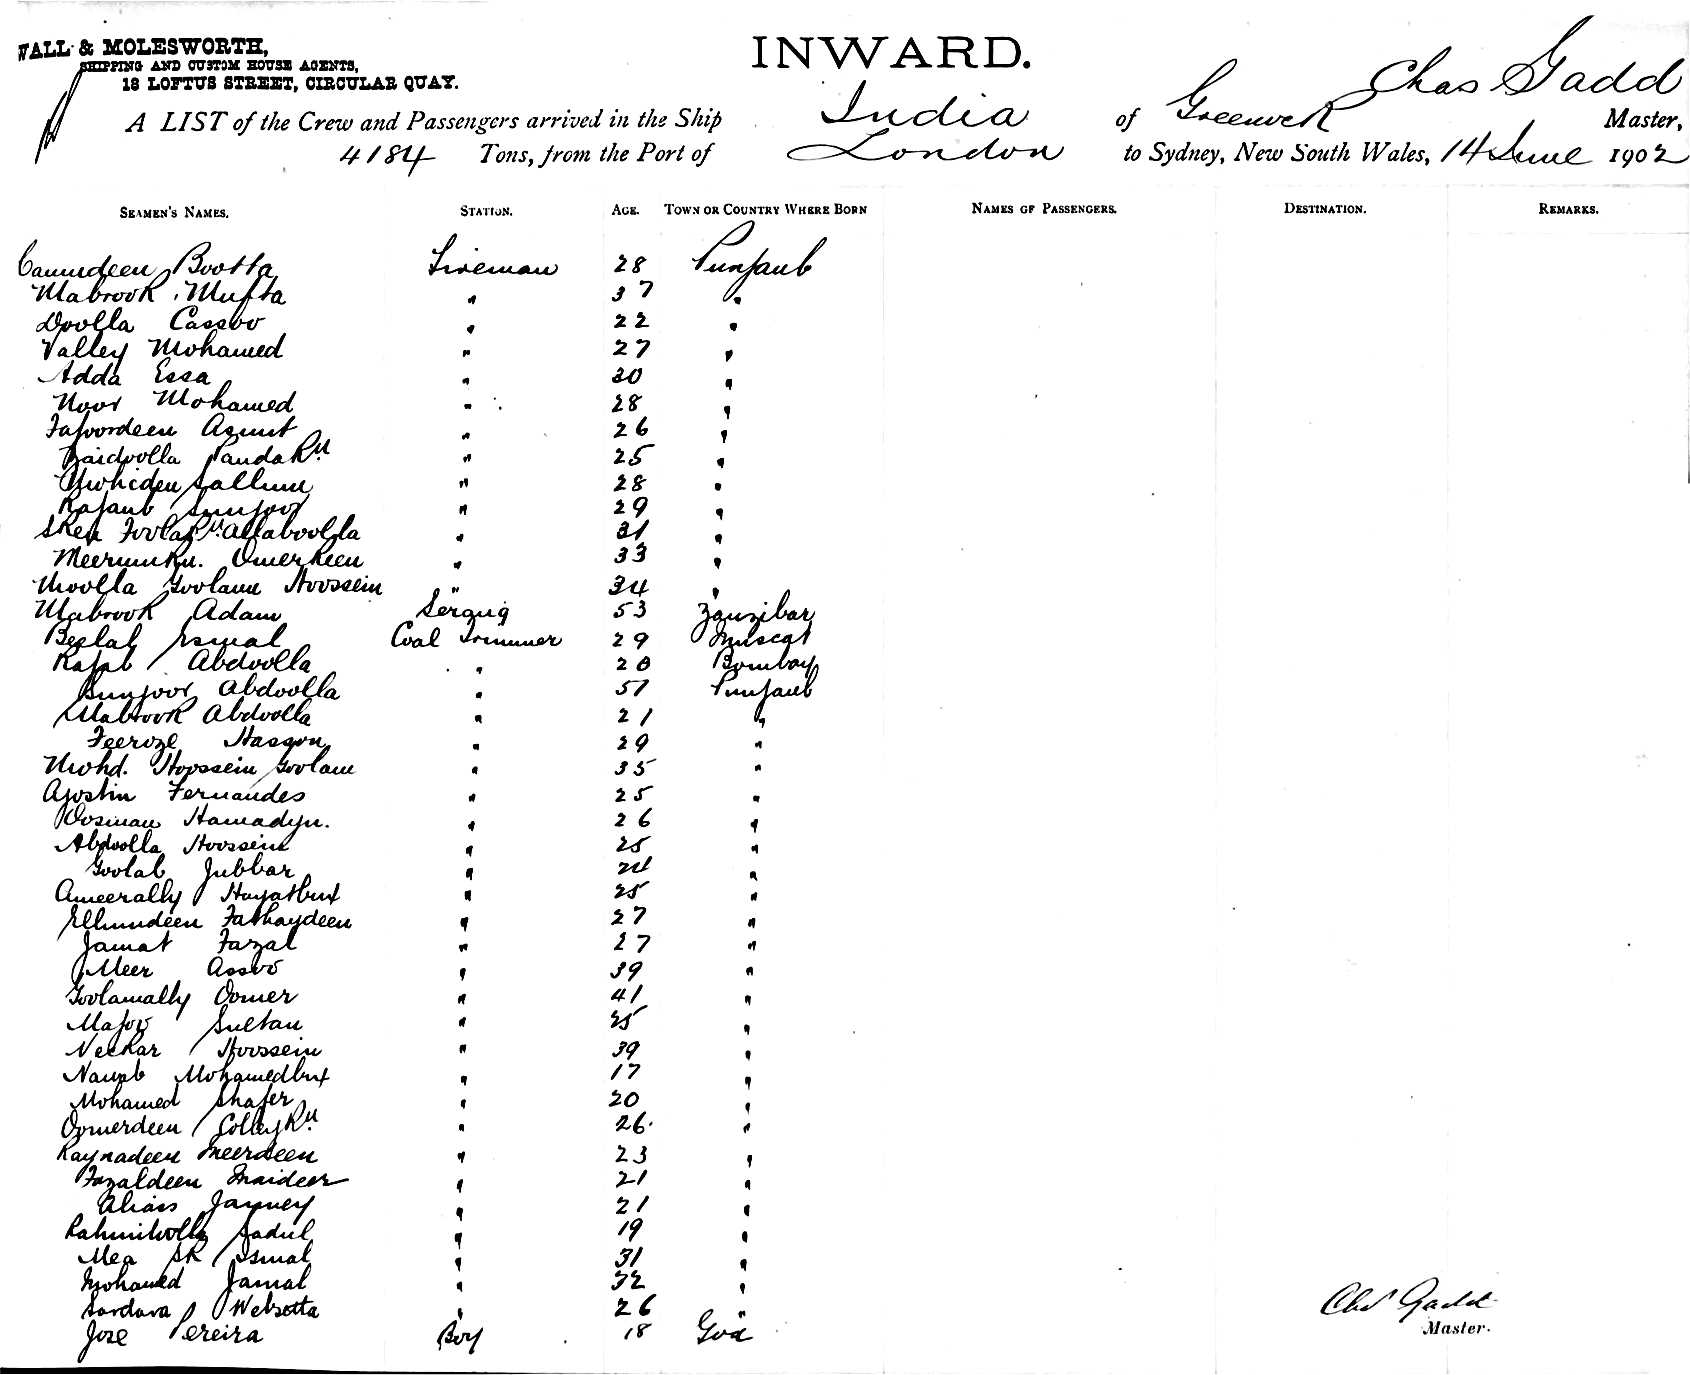 WALL & MOLESWORTH,
SHIPPING AND CUSTOM HOUSE AGENTS,
18 LOFTUS STREET, CIRCULAR QUAY.
INWARD.
A LIST of the Crew and Passengers arrived in the Ship India of Greenock Chas Gadd Master,
4184 Tons, from the Port of London to Sydney, New South Wales, 14 June 1902
SEAMEN'S NAMES. STATION. AGE. TOWN OR COUNTRY WHERE BORN NAMES OF PASSENGERS. DESTINATION. REMARKS.
Camurdeen Bootta Fireman 28 Punjaub
Mabrook Mufta " 37 "
Doolla Cassoo " 22 "
Valley Mohamed " 27 "
Adda Essa " 30 "
Noor Mohamed " 28 "
Fajoordeen Asmut " 26 "
Zaidoolla " 25 "
Sallum " 28 "
Rajaub Sunjoor " 29 "
Allaboolla " 31 "
Omerkeen " 33 "
Moolla Goolam Hoossein " 34 "
Mabrook Adam Serang 53 Zanzibar
Beelal Esmal Coal Trimmer 29 Muscat
Rajab Abdoolla " 20 Bombay
Sunjoor Abdoolla " 51 Punjaub
Mabrook Abdoolla " 21 "
Feeroze Hasson " 29 "
Mohd. Hoossein Goolam " 35 "
Agostin Fernandes " 25 "
Oosman Hamadyn. " 26 "
Abdoolla Hoossein " 25 "
Goolab Jubbar " 24 "
Ameerally Hayatbux " 25 "
Ellumdeen Fathaydeen " 27 "
Jamat Fazal " 27 "
Meer Assoo " 39 "
Goolamally Oomer " 41 "
Majoo Sultan " 25 "
Neckar Hoossein " 39 "
Nawab Mohamedbux " 17 "
Mohamed Shafer " 20 "
Oomerdeen " 26. "
Raynadeen Meerdeen " 23 "
Fazaldeen Maideer " 21 "
Alias " 21 "
Sadul " 19 "
Mea Sk Ismal " 31 "
Mohamed Jamal " 32 "
Sardara " 26 "
Jose Pereira Boy 18 Goa
Chas Gadd
Master.